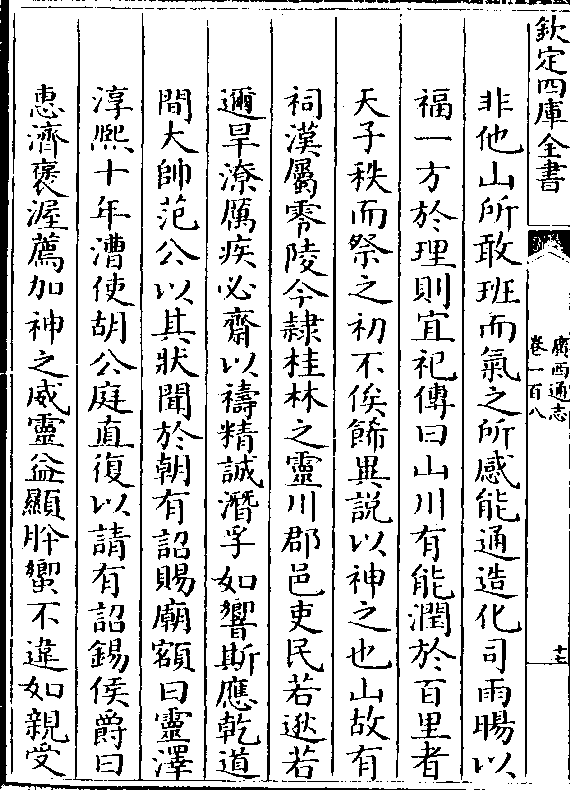 欽定四庫全書
廣西通志
卷一百八
十七
非他山所敢班而氣之所感能通造化司雨暘以
福一方於理則宜祀傳曰山川有能潤於百里者
天子秩而祭之初不俟飾異説以神之也山故有
祠漢屬零陵今隷桂林之靈川郡邑吏民若逖若
邇旱潦厲疾必齋以禱精誠潛孚如響斯應乾道
間大帥范公以其狀聞於朝有詔賜廟額曰靈澤
淳熙十年漕使胡公庭直復以請有詔錫侯爵曰
惠濟褒渥薦加神之威靈益顯肸蠁不違如親受